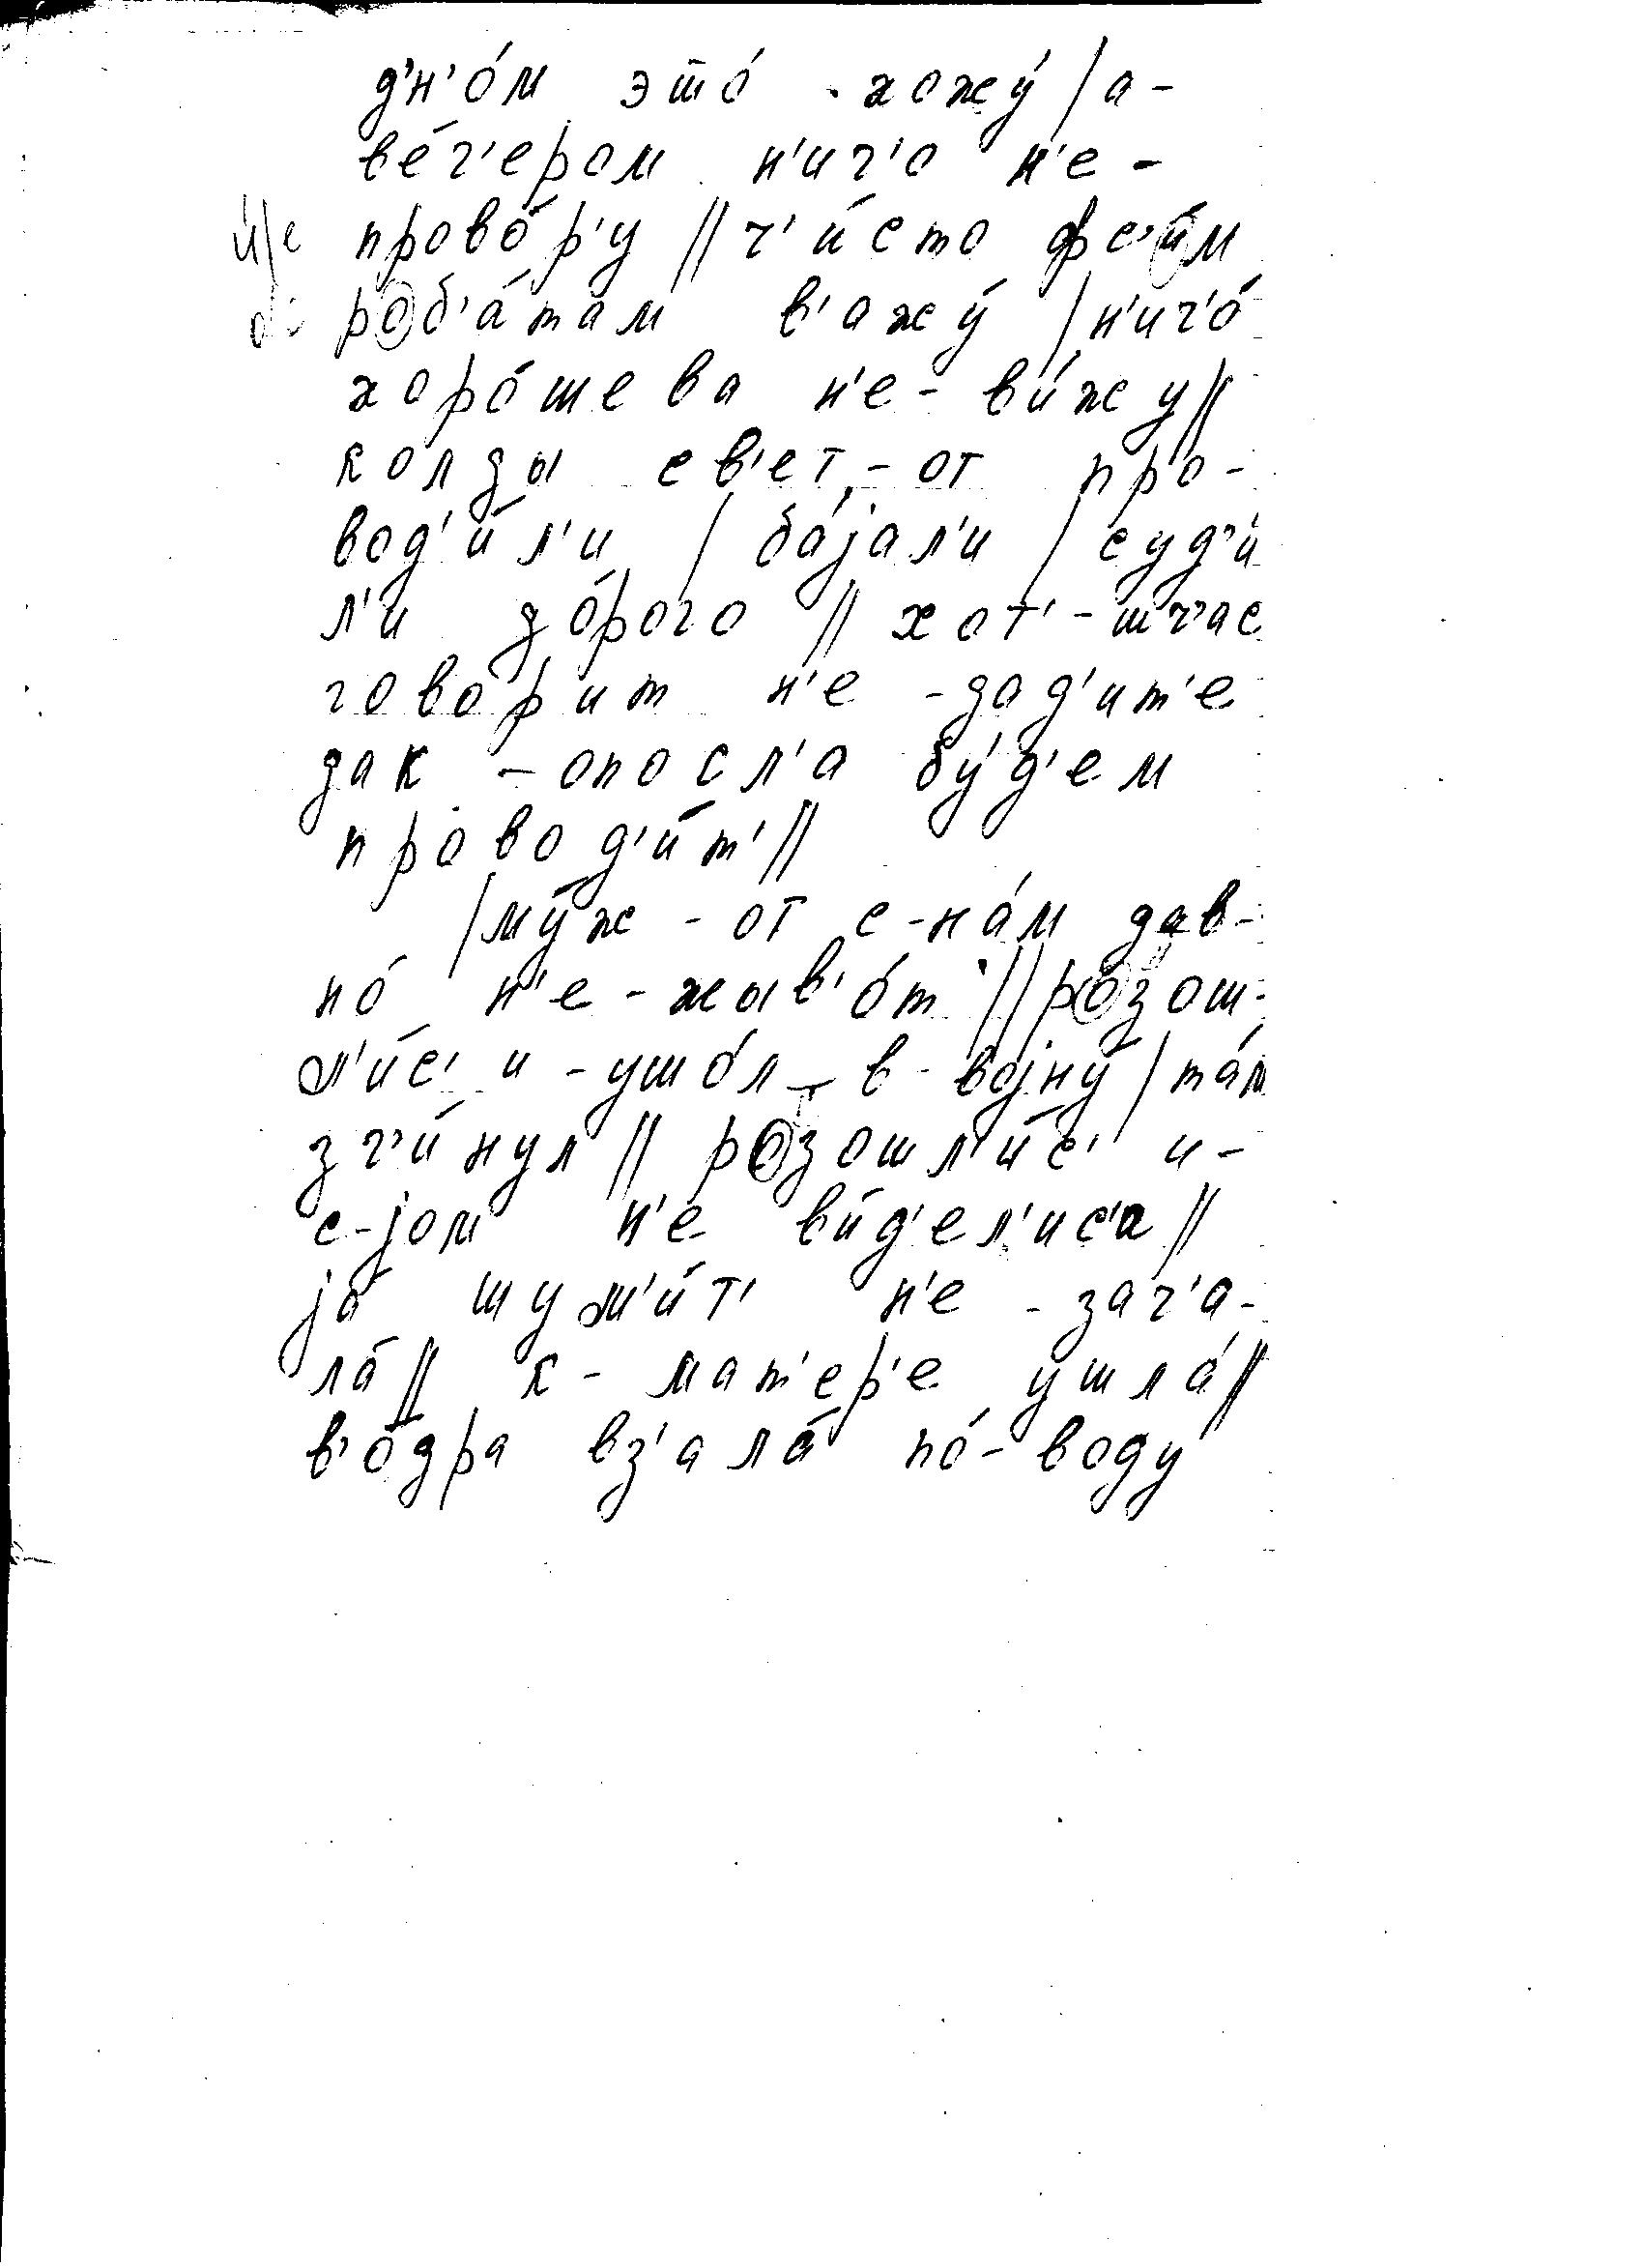 д'н'о́м это́ хожу́ / а-
ве́ч'ером н'ич'о н'е-
и́/е прово́р'у // ч'и́сто фс'и́м
роб'а́там в'ажу́ / н'ич'о́
хоро́шева н'е- ви́жу //
колды св'ет-от про-
вод'и́л'и / ба́јал'и / суд'и́
л'и до́рого // хот'-шч'ас
говори́т н'е -дад'ит'е
дак -опосл'а бу́д'ем
провод'и́т' //
/ му́ж -от с-на́м дав-
но́ н'е -жыв'о́т // розош-
л'и́с' и -ушо́л в- војну́ / та́м
зг'и́нул // розошл'и́с' и-
с-јом н'е ви́д'ел'ис'а //
ја шум'и́т' н'е -зач'а-
ла́ // к- мат'ер'е ушла́ //
в'о́дра вз'ала́ по́- воду